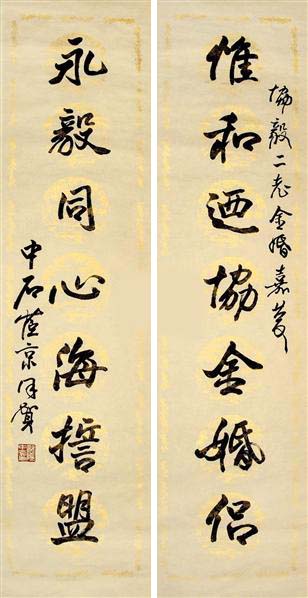 協毅二老金婚嘉慶
惟和迺協金婚侶
永毅同心海誓盟
中石茝京賀